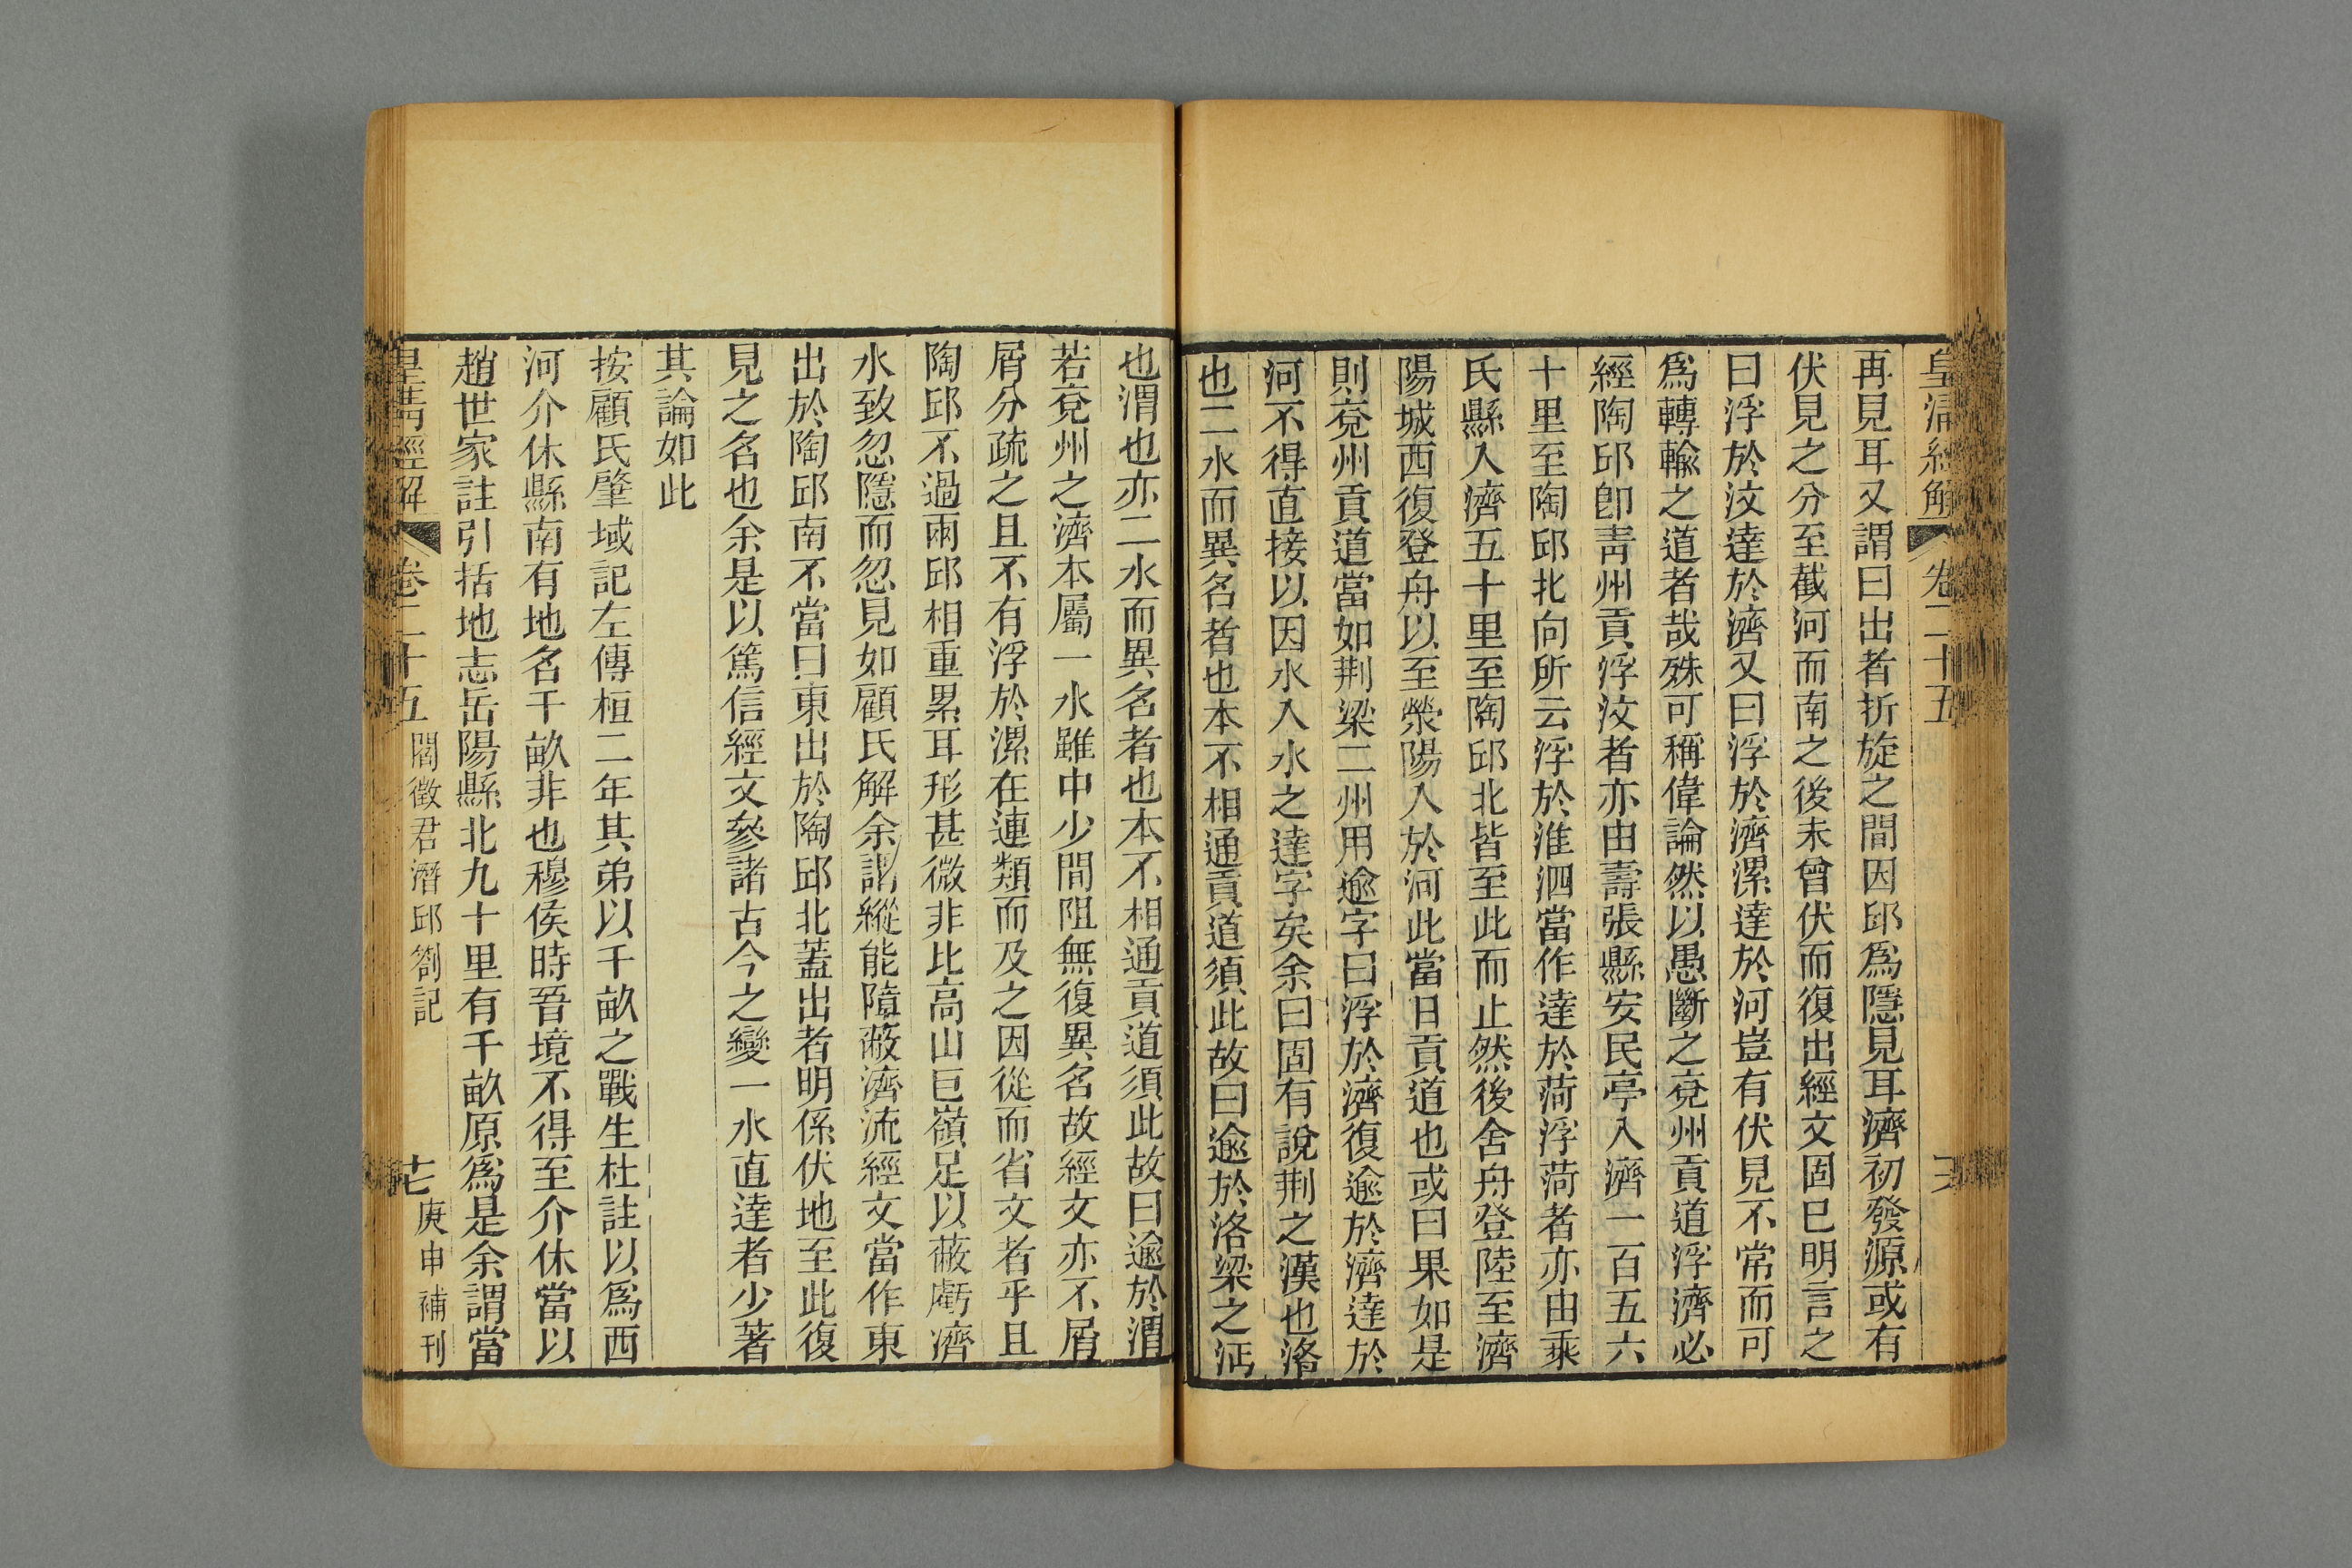 皇清經解 卷二十五
再見耳又謂曰出者折旋之間因邱爲隱見耳濟初發源或有
伏見之分至截河而南之後未曾伏而復出經文固巳明言之
曰浮於汶達於濟又曰浮於濟漯達於河豈有伏見不常而可
爲轉輸之道者哉殊可稱偉論然以愚斷之兗州貢道浮濟必
經陶邱卽靑州貢浮汶者亦由壽張縣安民亭入濟一百五六
十里至陶邱北向所云浮於淮泗當作達於菏浮菏者亦由乘
氏縣入濟五十里至陶邱北皆至此而止然後舍舟登陸至濟
陽城西復登舟以至滎陽入於河此當日貢道也或曰果如是
則兗州貢道當如荆梁二州用逾字曰浮於濟復逾於濟達於
河不得直接以因水入水之達字矣余曰固有說荆之漢也洛
也二水而異名者也本不相通貢道須此故曰逾於洛梁之沔
也渭也亦二水而異名者也本不相通貢道須此故曰逾於渭
若兗州之濟本屬一水雖中少間阻無復異名故經文亦不屑
屑分疏之且不有浮於漯在連類而及之因從而省文者乎且
陶邱不過兩邱相重累耳形甚微非比高山巨嶺足以蔽虧濟
水致忽隱而忽見如顧氏解余謂縱能障蔽濟流經文當作東
出於陶邱南不當曰東出於陶邱北蓋出者明係伏地至此復
見之名也余是以篤信經文參諸古今之變一水直達者少著
其論如此
按顧氏肇域記左傳桓二年其弟以千畝之戰生杜註以爲西
河介休縣南有地名千畝非也穆侯時晉境不得至介休當以
趙世家註引括地志岳陽縣北九十里有千畝原爲是余謂當
皇清經解 卷二十五 閻徵君潛邱劄記 十七 庚申補刊